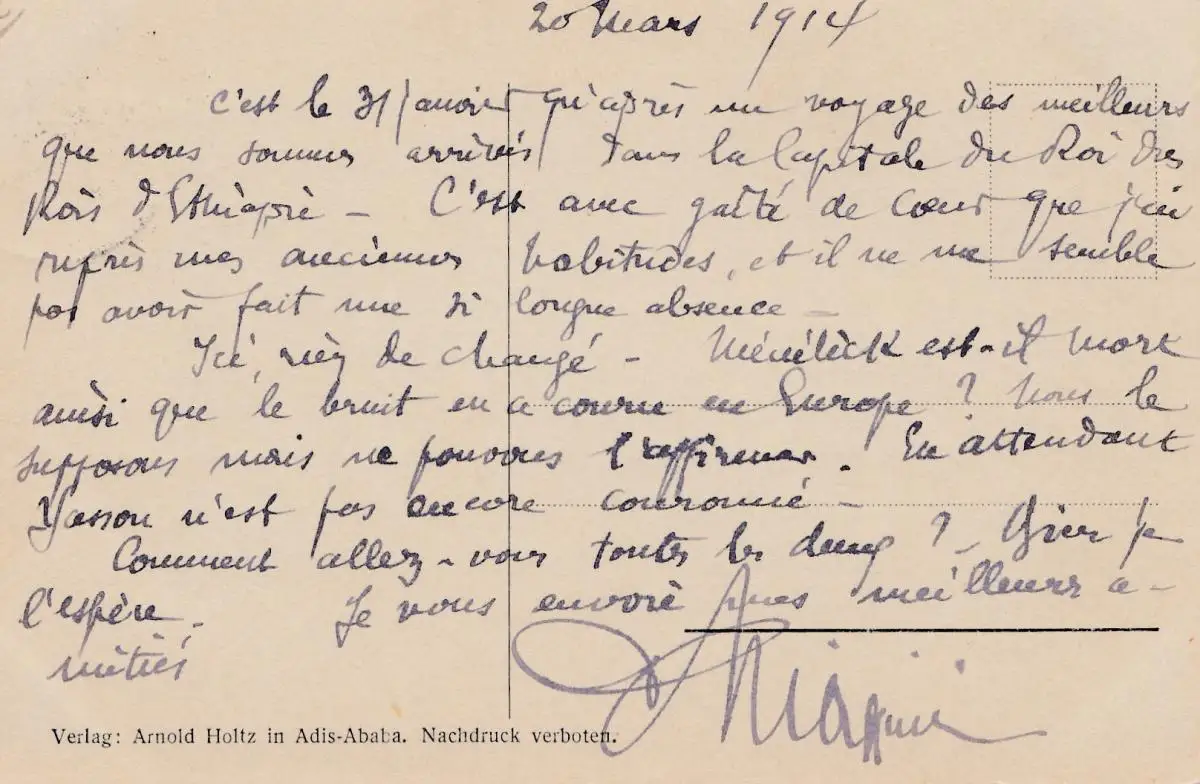 20 Mars 1914
C'est le 31 janvier qu'après un voyage des meilleurs
que nous sommes arrivés dans la Capitale du Roi des
Rois d'Ethiopie – C'est avec gaîté de cœur que j'ai
repris mes anciennes habitudes, et il ne me semble
pas avoir fait une si longue absence –
Ici, rien de changé – Ménélick est-il mort
ainsi que le bruit en a couru en Europe ? Nous le
supposons mais ne pouvons l'affirmer. En attendant
Yassou n'est pas encore couronné –
Comment allez-vous toutes les deux ? – Bien je
l'espère. Je vous envoie mes meilleurs a-
mitiés
Verlag: Arnold Holtz in Adis-Ababa. Nachdruck verboten.